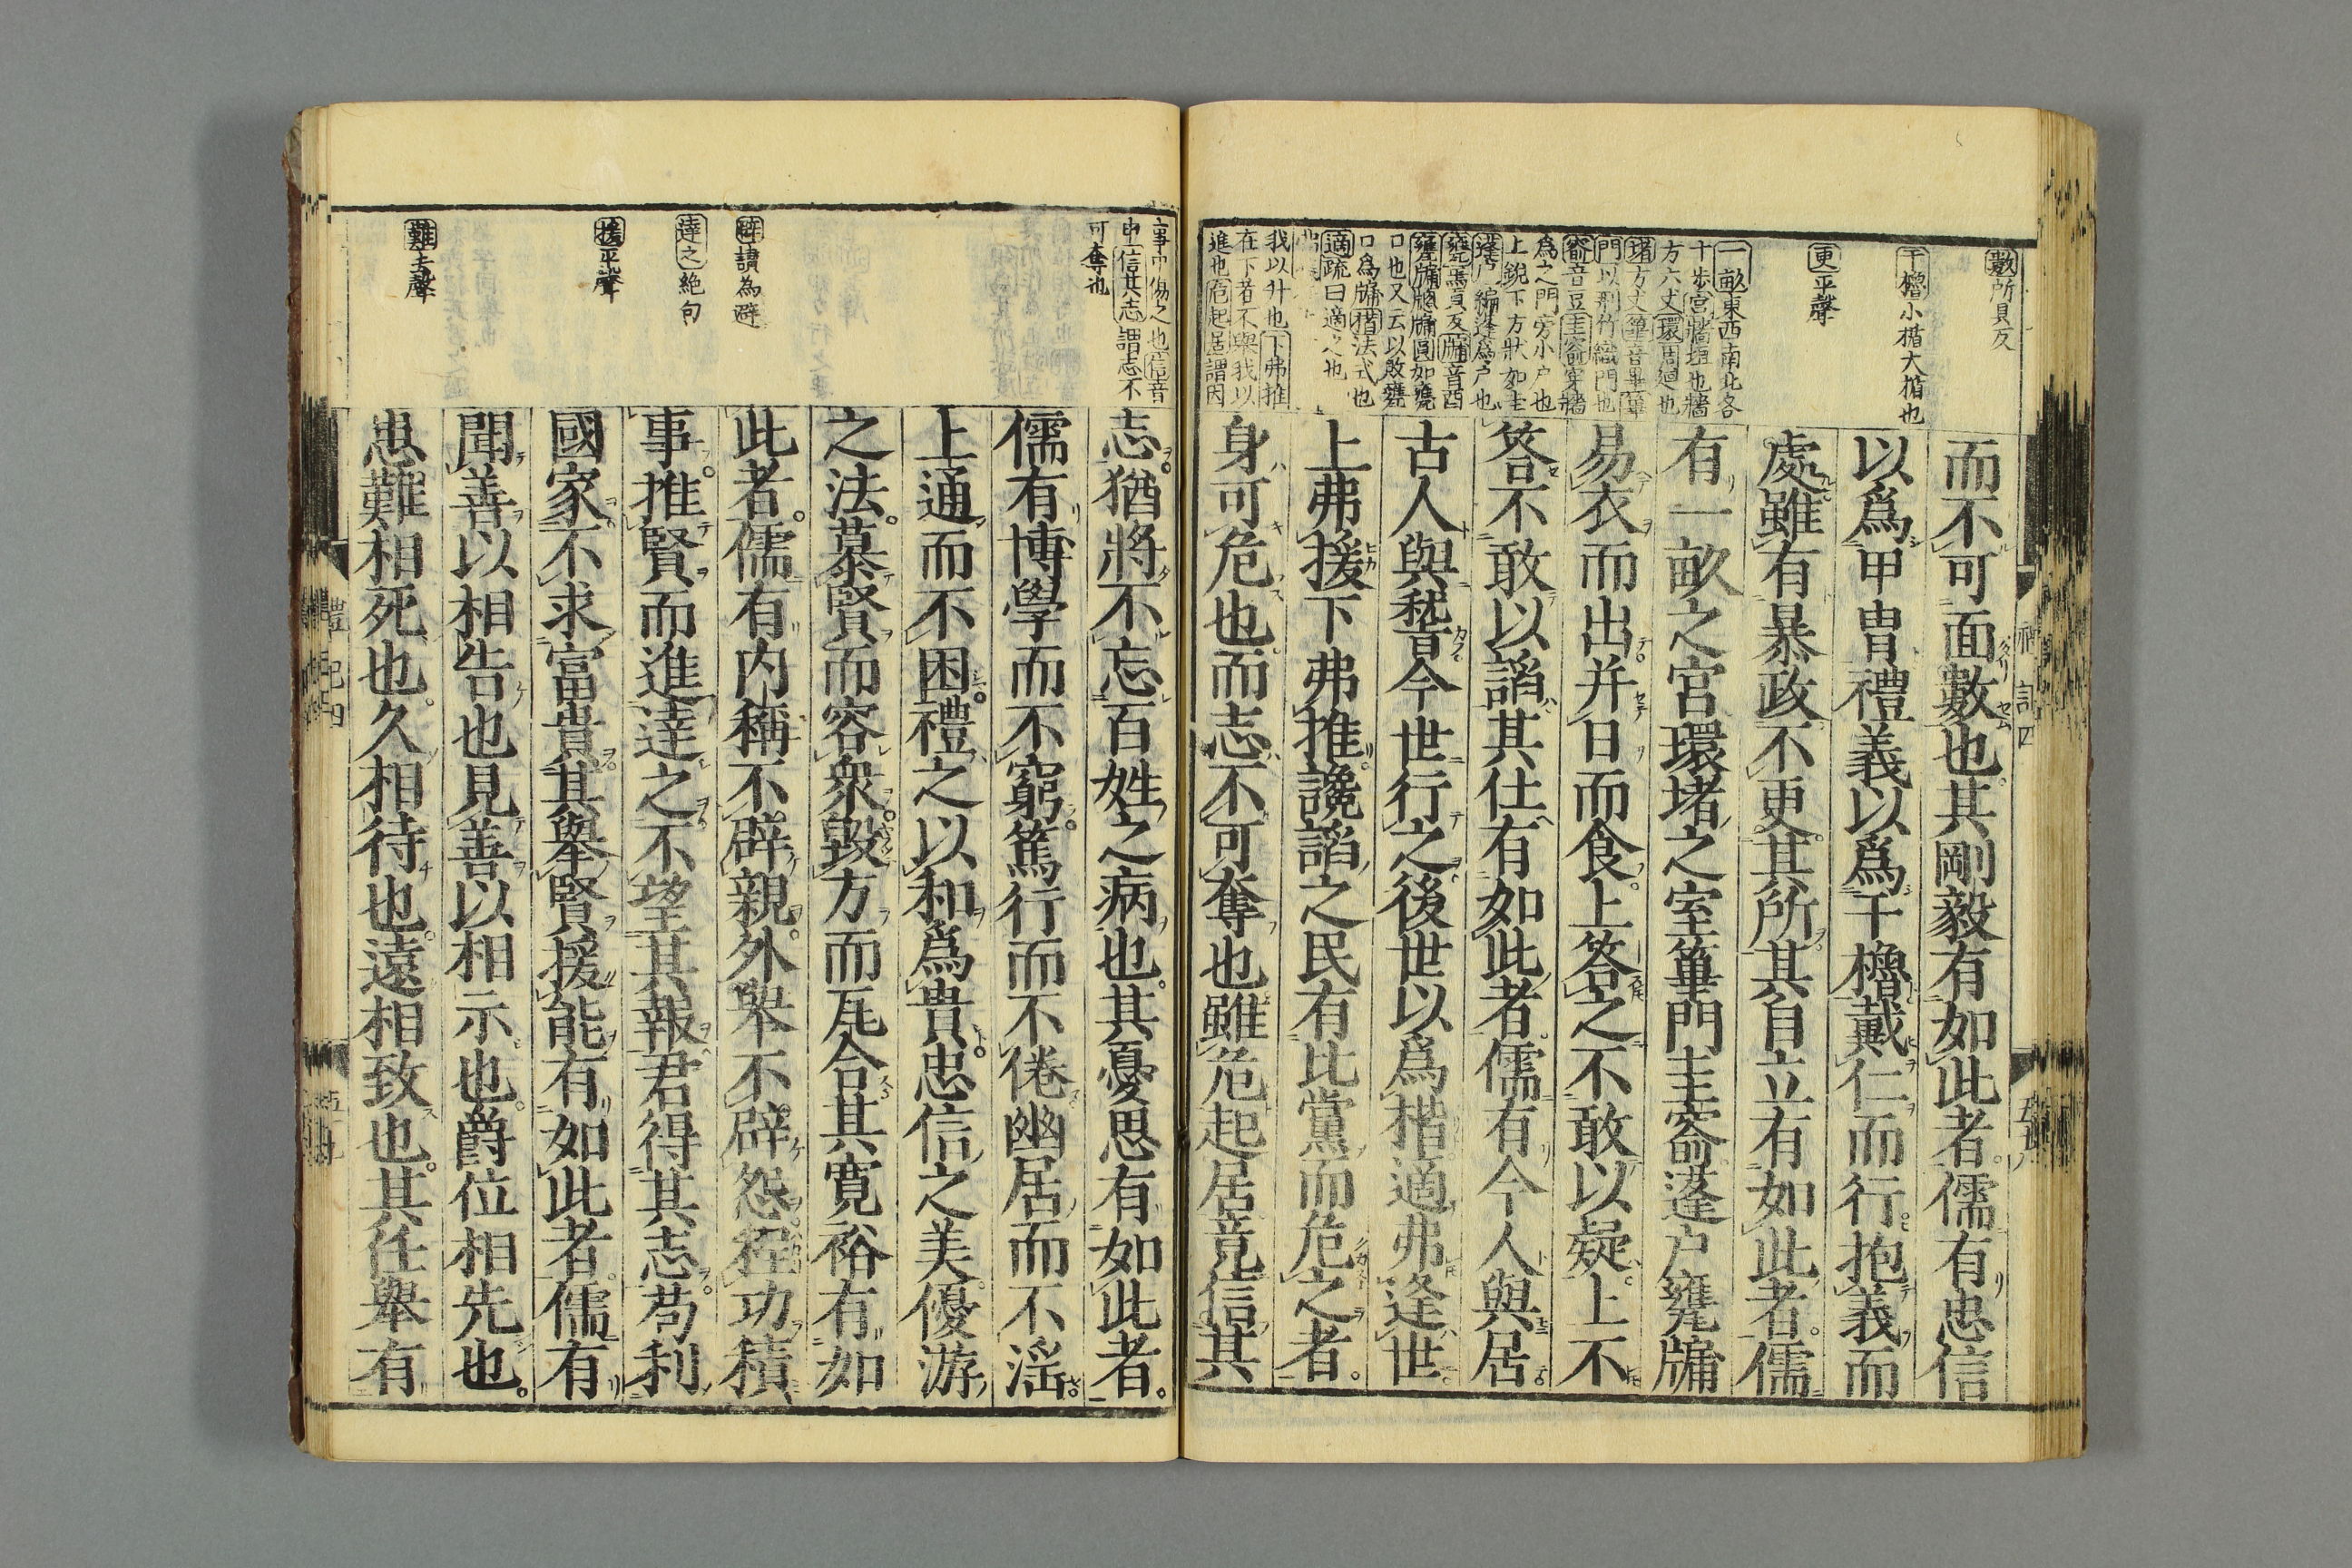 數所具反
干櫓小楯大楯也
更平聲
一畝東西南北各
十歩宮牆垣也牆
方六丈環周廻也
堵方丈篳音畢篳
門以荊竹織門也
窬音豆圭窬穿牆
為之門旁小户也
上鋭下方狀如圭
蓬户編蓬為户也
甕烏貢反牖音酉
甕牖牕牖圓如甕
口也又云以敗甕
口為牖楷法式也
適疏曰適之也
我以升也下弗推
在下者不舉我以
進也危起居謂因
而不可面數也其剛毅有如此者儒有忠信
以爲甲冑禮義以爲干櫓戴仁而行抱義而
處雖有暴政不更其所其自立有如此者儒
有一畝之宮環堵之室篳門圭窬蓬户甕牖
易衣而出并日而食上答之不敢以疑上不
答不敢以謟其仕有如此者儒有今人與居
古人與嵇今世行之後世以爲楷適弗逢世
上弗援下弗推讒謟之民有比黨而危之者
身可危也而志不可奪也雖危起居竟信其
事中傷之也信音
申信其志謂志不
可奪也
辟讀為避
達之絶句
援平聲
難去聲
志猶將不忘百姓之病也其憂思有如此者
儒有博學而不窮篤行而不倦幽居而不滛
上通而不困禮之以和爲貴忠信之美優游
之法慕賢而容衆毀方而瓦合其寛裕有如
此者儒有内稱不辟親外舉不辟怨程功積
事推賢而進達之不望其報君得其志苟利
國家不求富貴其舉賢援能有如此者儒有
聞善以相告也見善以相示也爵位相先也
患難相死也久相待也遠相致也其任舉有
禮記四